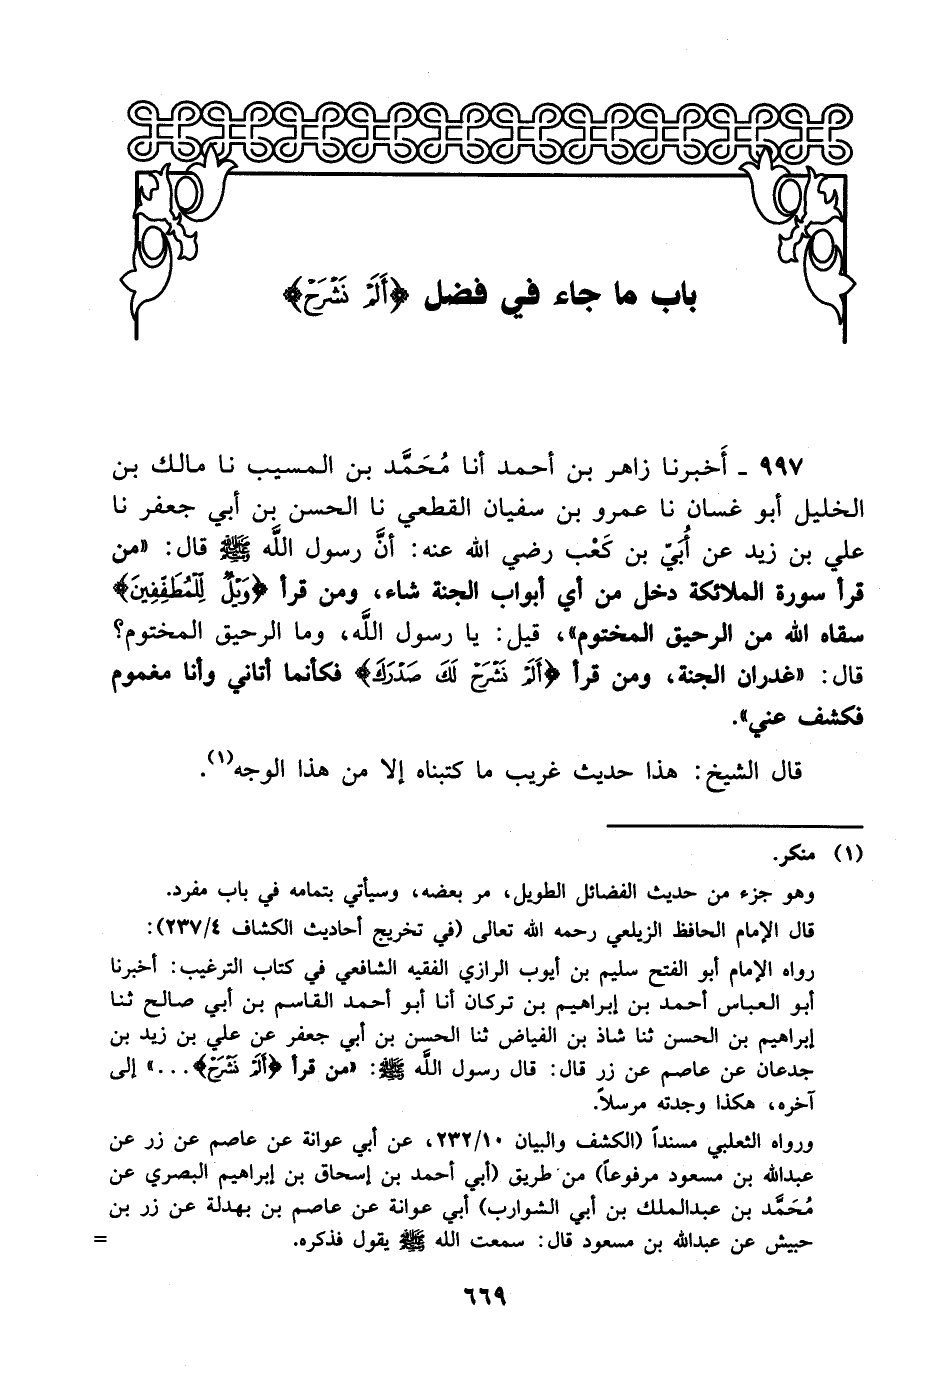 باب ما جاء في فضل ﴿أَلَمْ نَشْرَحْ﴾
٩٩٧ ـ أَخبرنا زاهر بن أحمد أنا مُحَمَّد بن المسيب نا مالك بن
الخليل أبو غسان نا عمرو بن سفيان القطعي نا الحسن بن أبي جعفر نا
علي بن زيد عن أُبَيّ بن كَعْب رضي الله عنه: أنَّ رسول اللَّه ﷺ قال: «من
قرأ سورة الملائكة دخل من أي أبواب الجنة شاء، ومن قرأ ﴿وَيْلٌ لِّلْمُطَفِّفِينَ﴾
سقاه الله من الرحيق المختوم»، قيل: يا رسول اللَّه، وما الرحيق المختوم؟
قال: «غدران الجنة، ومن قرأ ﴿أَلَمْ نَشْرَحْ لَكَ صَدْرَكَ﴾ فكأنما أتاني وأنا مغموم
فكشف عني».
قال الشيخ: هذا حديث غريب ما كتبناه إلا من هذا الوجه(١).
(١) منكر.
وهو جزء من حديث الفضائل الطويل، مر بعضه، وسيأتي بتمامه في باب مفرد.
قال الإمام الحافظ الزيلعي رحمه الله تعالى (في تخريج أحاديث الكشاف ٢٣٧/٤):
رواه الإمام أبو الفتح سليم بن أيوب الرازي الفقيه الشافعي في كتاب الترغيب: أخبرنا
أبو العباس أحمد بن إبراهيم بن تركان أنا أبو أحمد القاسم بن أبي صالح ثنا
إبراهيم بن الحسن ثنا شاذ بن الفياض ثنا الحسن بن أبي جعفر عن علي بن زيد بن
جدعان عن عاصم عن زر قال: قال رسول اللَّه ﷺ: «من قرأ ﴿أَلَمْ نَشْرَحْ﴾...» إلى
آخره، هكذا وجدته مرسلاً.
ورواه الثعلبي مسنداً (الكشف والبيان ٢٣٢/١٠، عن أبي عوانة عن عاصم عن زر عن
عبدالله بن مسعود مرفوعاً) من طريق (أبي أحمد بن إسحاق بن إبراهيم البصري عن
مُحَمَّد بن عبدالملك بن أبي الشوارب) أبي عوانة عن عاصم بن بهدلة عن زر بن
حبيش عن عبدالله بن مسعود قال: سمعت الله ﷺ يقول فذكره. =
٦٦٩